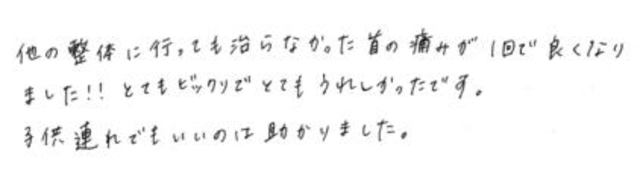 他の整体に行っても治らなかった首の痛みが1回で良くなり
ました!!とてもビックリでとてもうれしかったです。
子供連れでもいいのは助かりました。